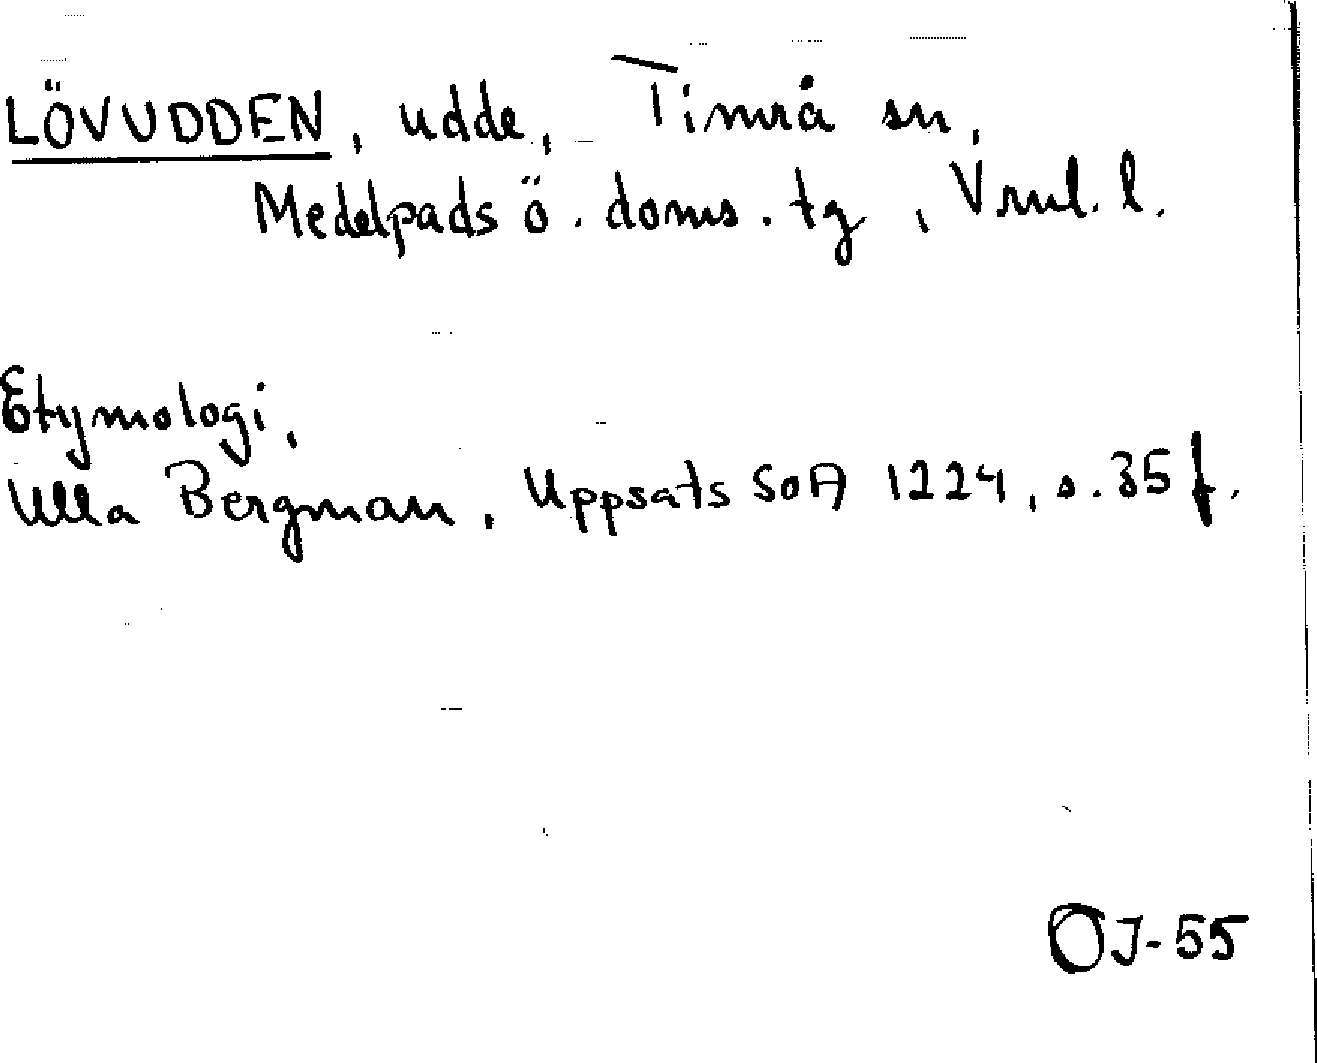 LÖVUDDEN, udde, Timrå sn,
Medelpads ö. doms. tg, Vrnl. l.
Etymologi,
Ulla Bergman, Uppsats SOA 1224, s. 35 f.
OJ-55